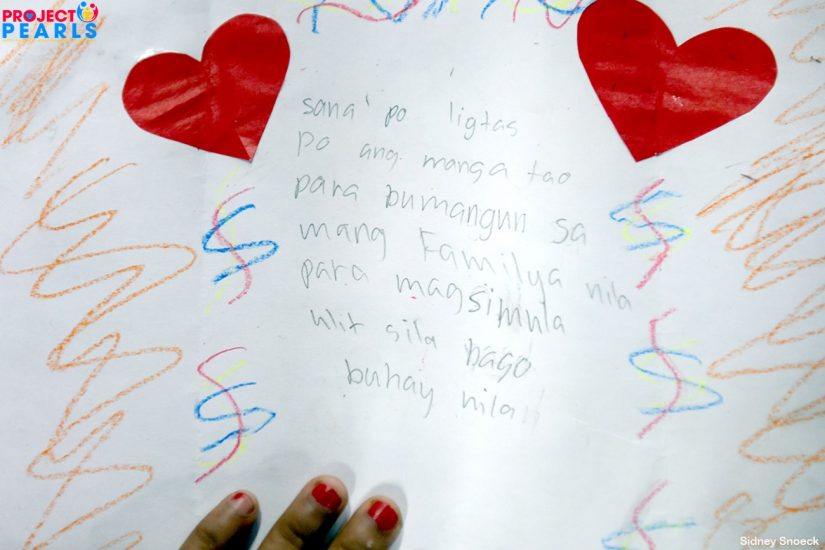 PROJECT
PEARLS
sana po ligtas
po ang manga tao
para bumangun sa
mang Familya nila
para magsimula
ulit sila bago
buhay nila
Sidney Snoeck